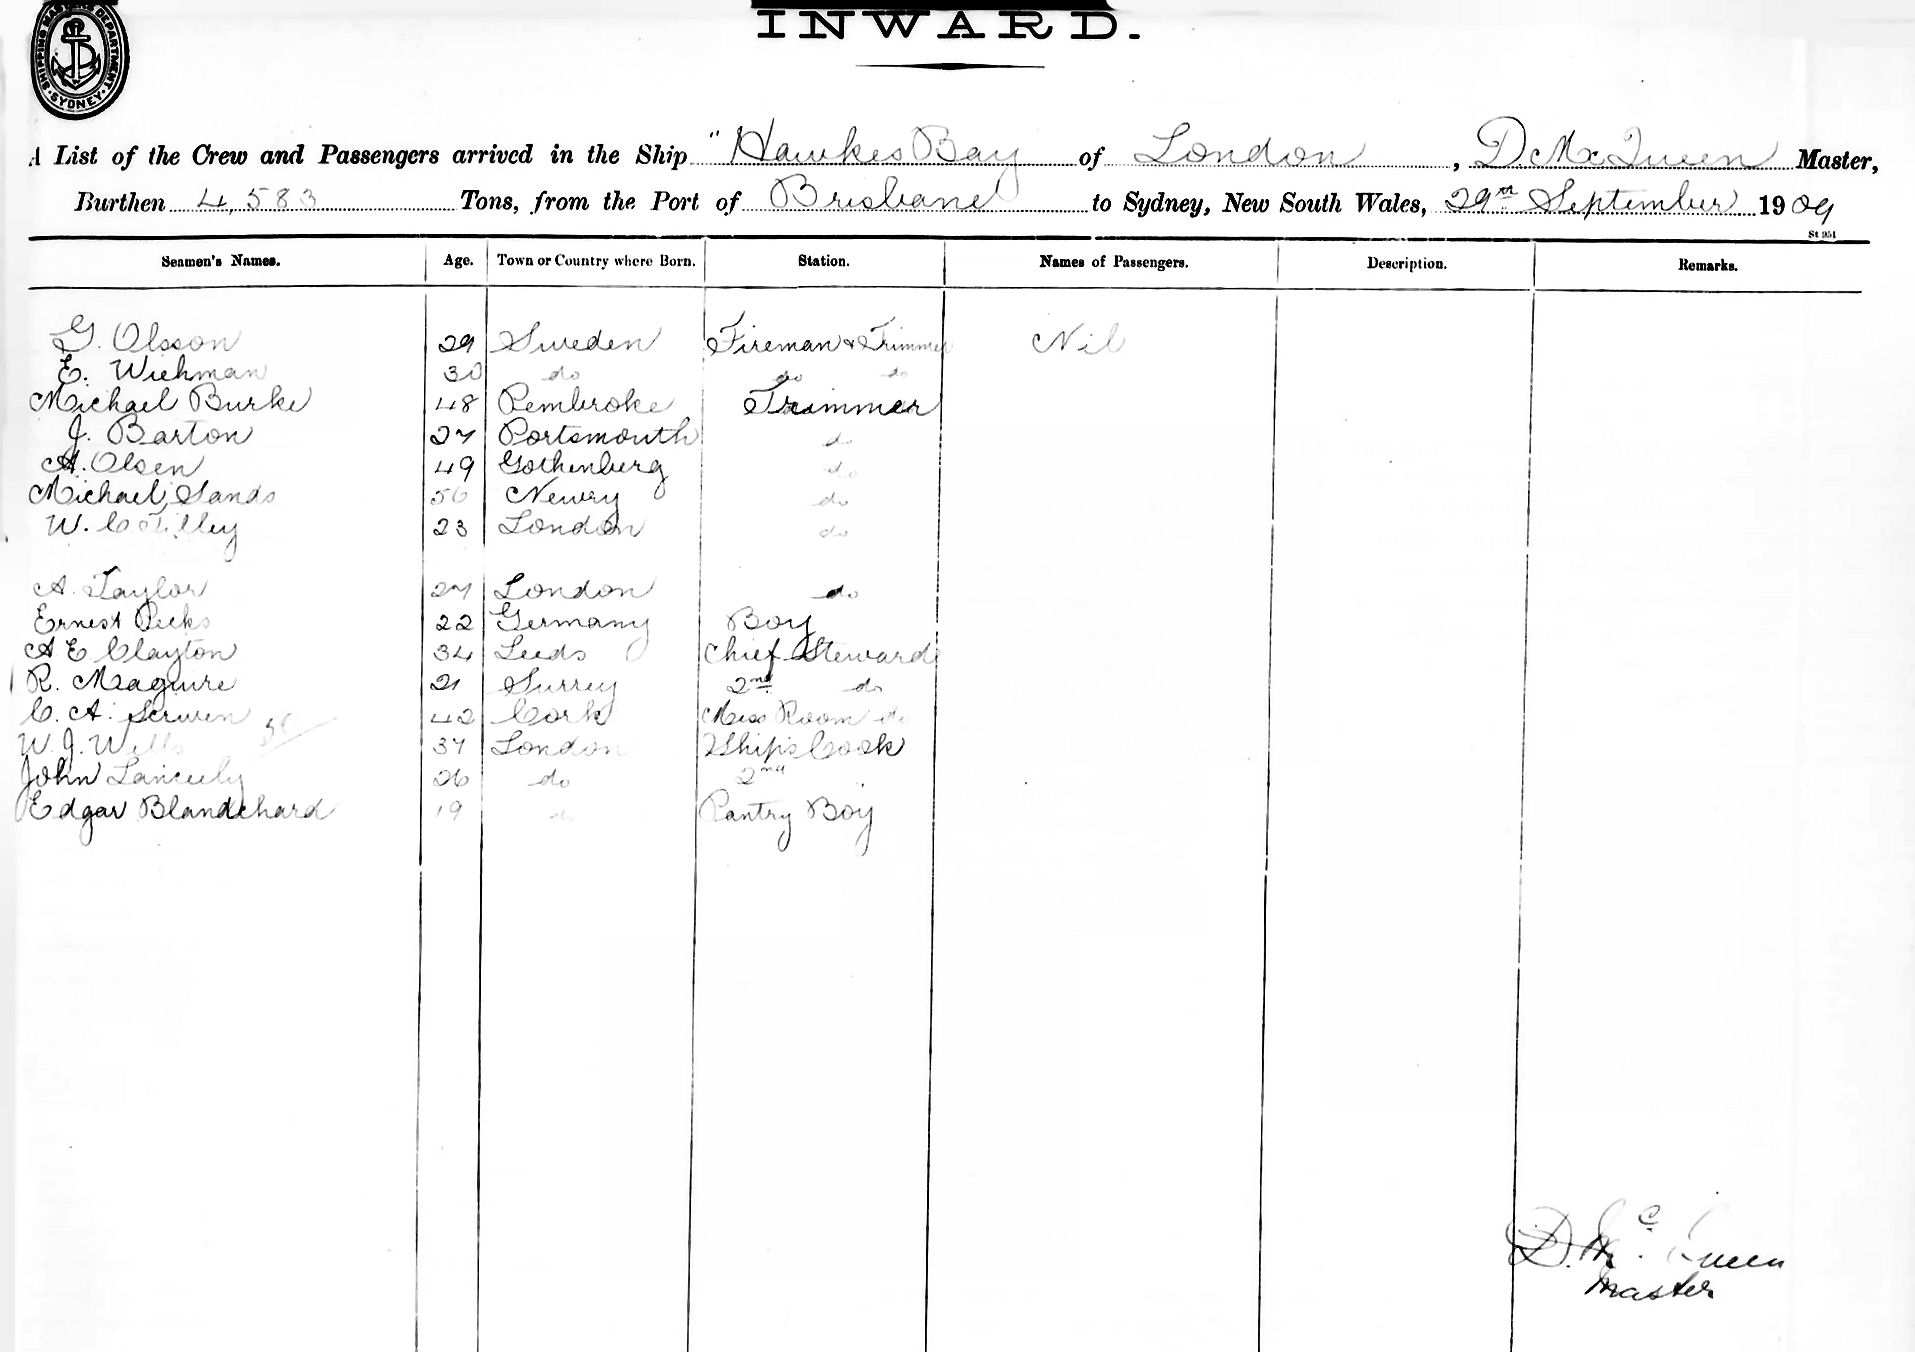 SHIPPING MASTERS DEPARTMENT · SYDNEY ·
INWARD.
A List of the Crew and Passengers arrived in the Ship "Hawkes Bay of London, D McQueen Master,
Burthen 4,583 Tons, from the Port of Brisbane to Sydney, New South Wales, 29th September 1909
St 951
Seamen's Names. Age. Town or Country where Born. Station. Names of Passengers. Description. Remarks.
G. Olsson 29 Sweden Fireman & Trimmer Nil
E. Wickman 30 do do do
Michael Burke 48 Pembroke Trimmer
J. Barton 27 Portsmouth do
A. Olsen 49 Gothenberg do
Michael Sands 56 Newry do
W. C Tilley 23 London do
A. Taylor 27 London do
Ernest Pecks 22 Germany Boy
A E Clayton 34 Leeds Chief Steward
R. Maguire 21 Surrey 2nd do
C. A. Scriven 42 Cork Mess Room do
W. J. Wills 37 London Ship's Cook
John 26 do 2nd
Edgar Blandchard 19 do Pantry Boy
D. Mc. Queen
Master